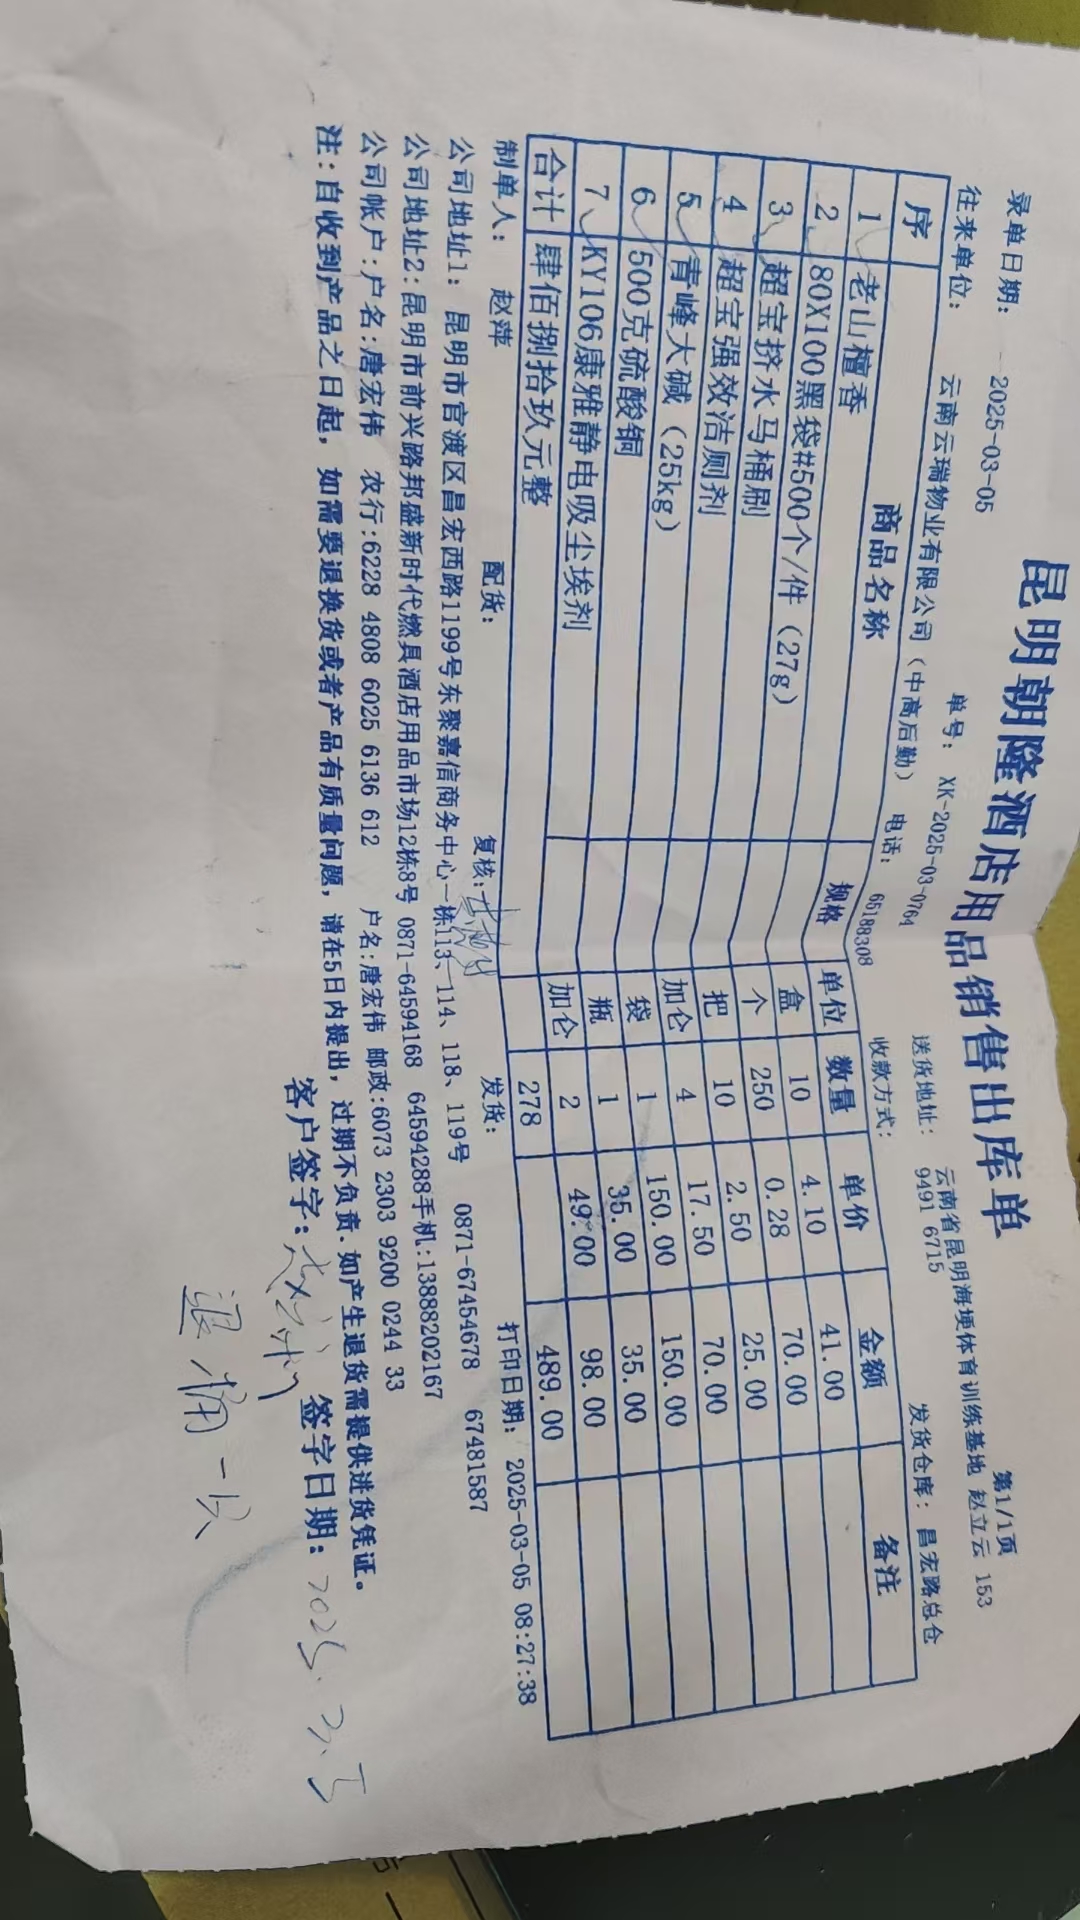 昆明朝隆酒店用品销售出库单
第1/1页
录单日期： 2025-03-05 单号： XK-2025-03-0764 送货地址： 云南省昆明海埂体育训练基地 赵立云 153 9491 6715
往来单位： 云南云瑞物业有限公司（中高后勤） 电话： 65188308 收款方式： 发货仓库：昌宏路总仓
序 商品名称 规格 单位 数量 单价 金额 备注
1 老山檀香 盒 10 4.10 41.00
2 80X100黑袋#500个/件（27g） 个 250 0.28 70.00
3 超宝挤水马桶刷 把 10 2.50 25.00
4 超宝强效洁厕剂 加仑 4 17.50 70.00
5 青峰大碱（25kg） 袋 1 150.00 150.00
6 500克硫酸铜 瓶 1 35.00 35.00
7 KY106康雅静电吸尘埃剂 加仑 2 49.00 98.00
合计 肆佰捌拾玖元整 278 489.00
制单人： 赵萍 配货： 复核： 发货： 打印日期： 2025-03-05 08:27:38
公司地址1： 昆明市官渡区昌宏西路1199号东聚嘉信商务中心一栋113、114、118、119号 0871-67454678 67481587
公司地址2:昆明市前兴路邦盛新时代燃具酒店用品市场12栋8号 0871-64594168 64594288手机:13888202167
公司帐户:户名:唐宏伟 农行:6228 4808 6025 6136 612 户名:唐宏伟 邮政:6073 2303 9200 0244 33
注:自收到产品之日起，如需要退换货或者产品有质量问题，请在5日内提出，过期不负责.如产生退货需提供进货凭证。
客户签字: 签字日期: 2025.3.5
退桶一只